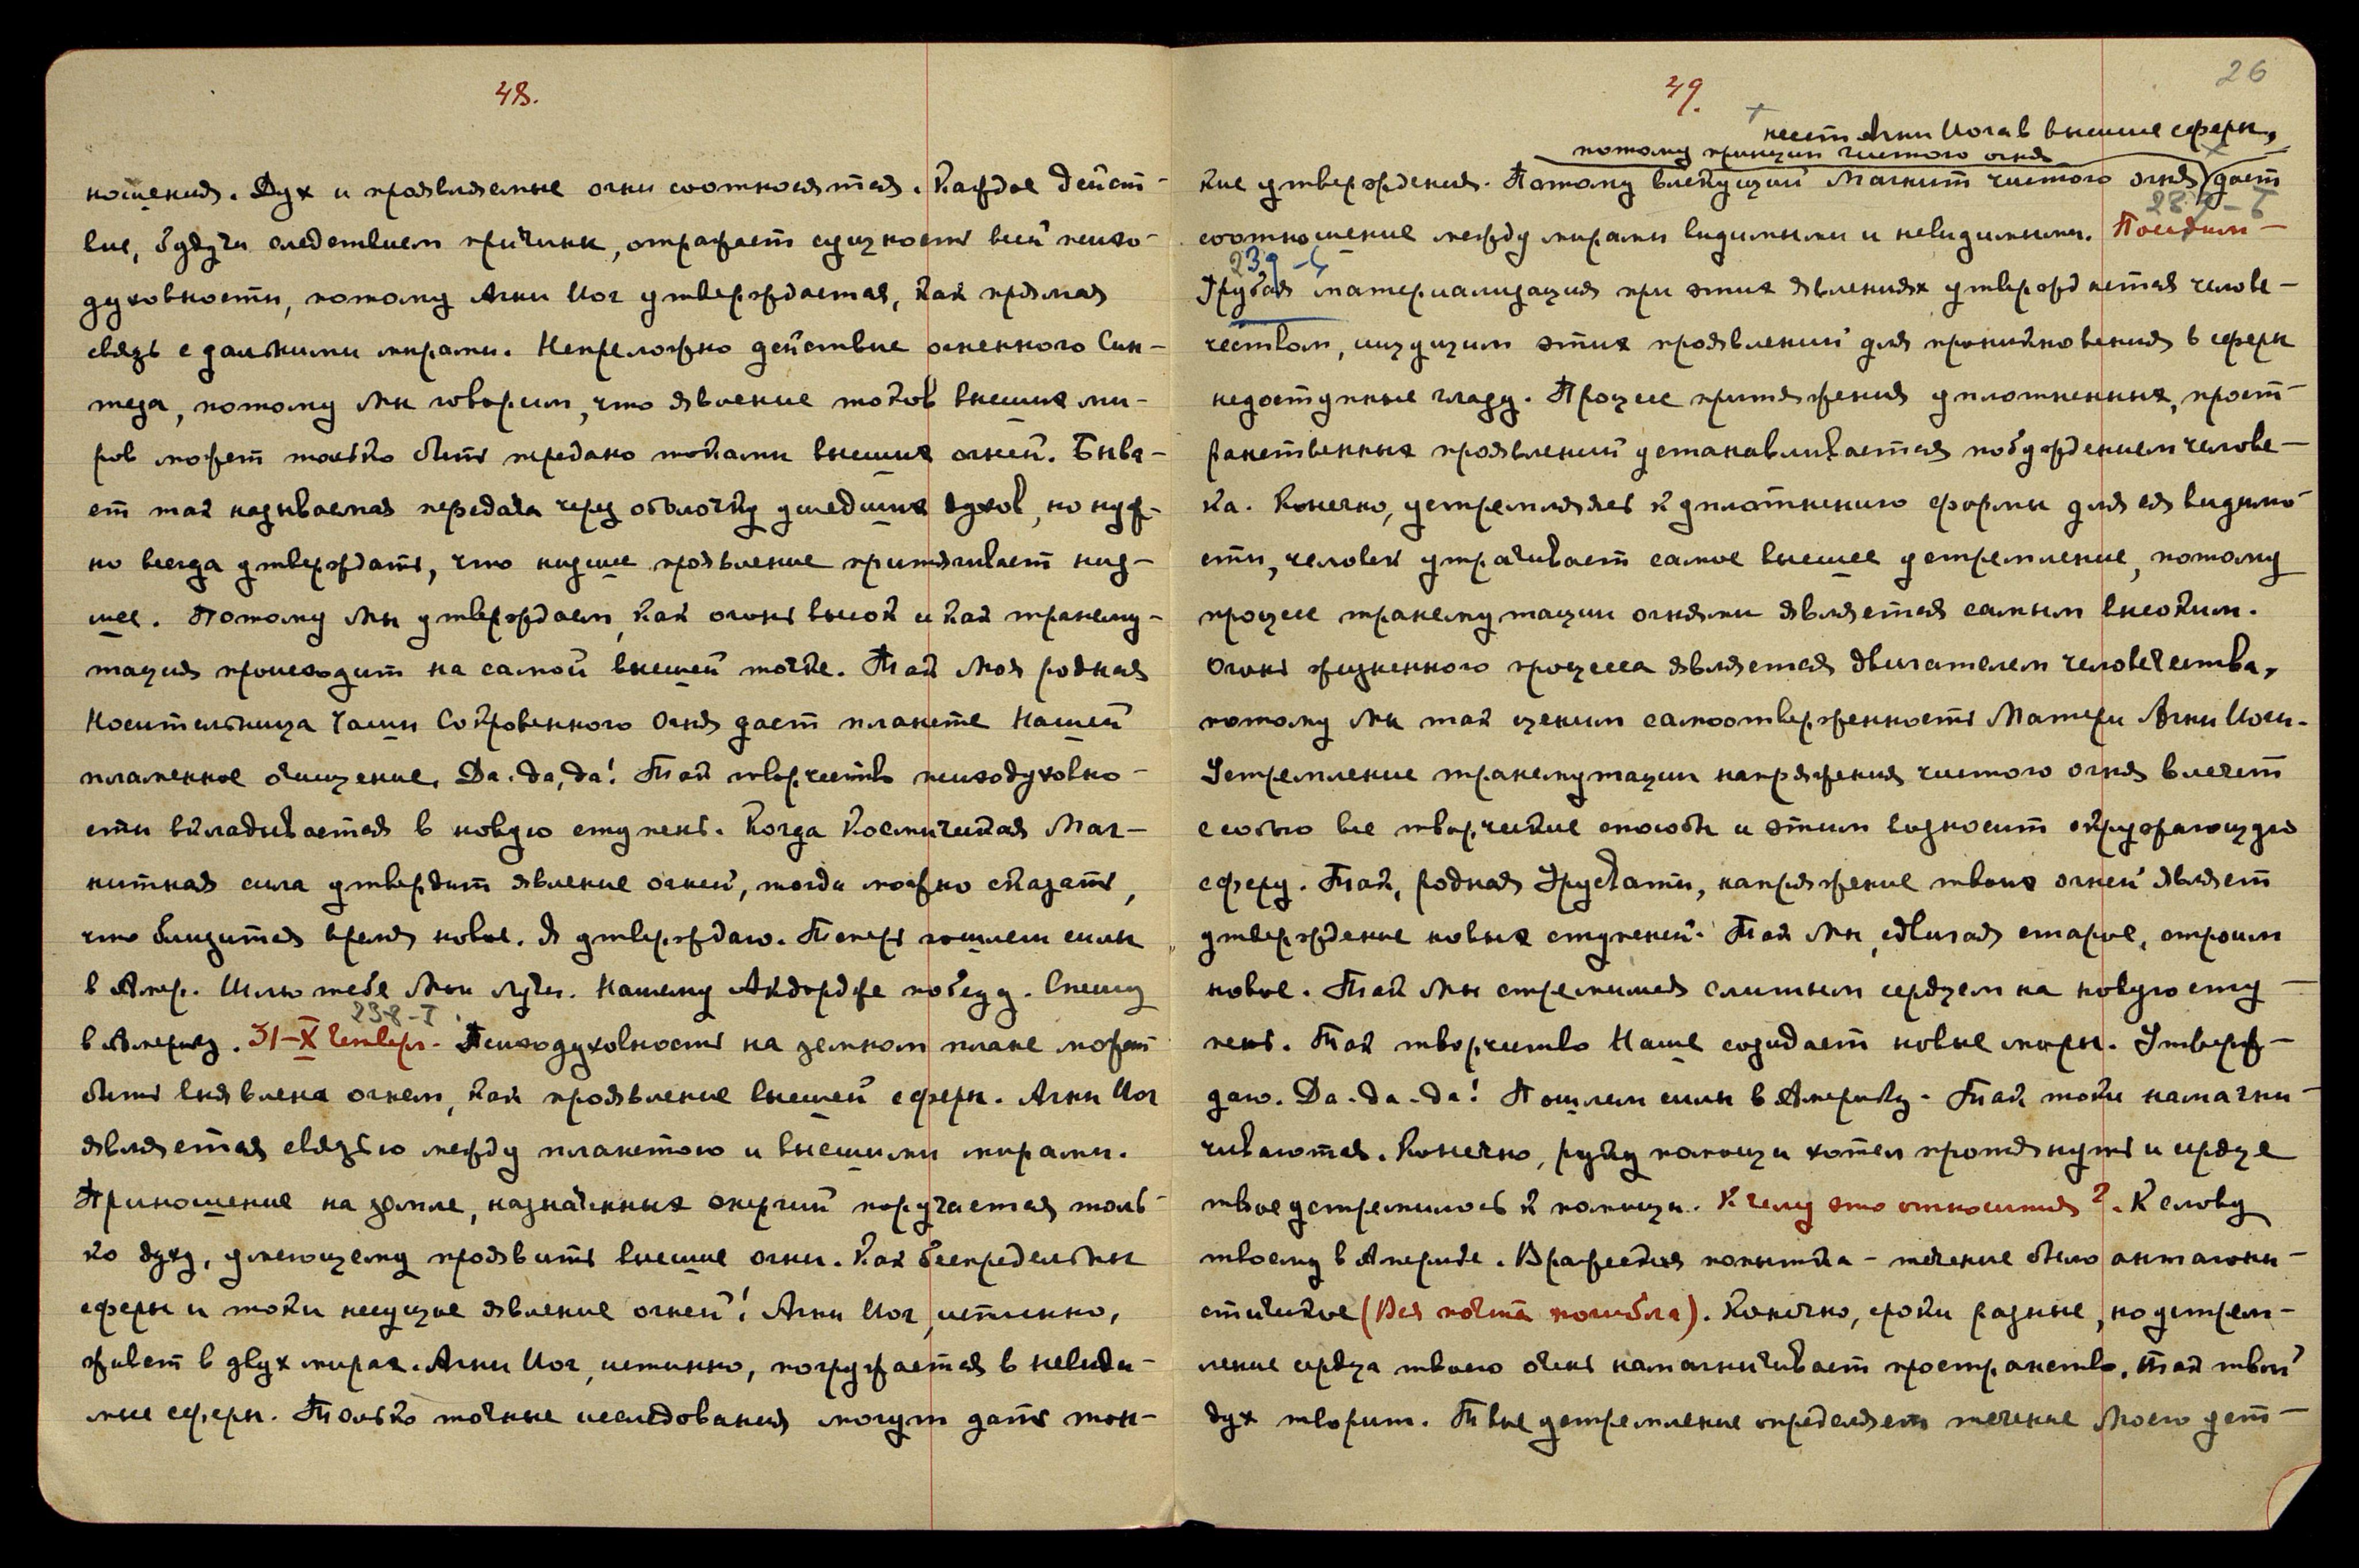 48.
ношения. Дух и проявляемые огни соотносятся. Каждое дейст-
вие, будучи следствием причины, отражает сущность всей психо-
духовности, потому Агни Йог утверждается, как прямая
связь с дальними мирами. Непреложно действие огненного Син-
теза, потому Мы говорим, что явление токов высших ми-
ров может только быть передано токами высших огней. Быва-
ет так называемая передача через оболочку ушедших духов, но нуж-
но всегда утверждать, что низшее проявление притягивает низ-
шее. Потому Мы утверждаем, как огонь высок и как трансму-
тация происходит на самой высшей точке. Так Моя родная
Носительница Чаши Сокровенного Огня дает планете Нашей
пламенное очищение. Да. да, да! Так творчество психодуховно-
сти вкладывается в новую ступень. Когда Космическая Маг-
нитная сила утвердит явление огней, тогда можно сказать,
что близится время новое. Я утверждаю. Теперь пошлем силы
в Амер. Шлю тебе Мои лучи. Нашему Акдордже победу. Спешу
238-I
в Америку. 31-X Четверг. Психодуховность на земном плане может
быть выявлена огнем, как проявление высшей сферы. Агни Йог
является связью между планетою и высшими мирами.
Приношение на земле, назначенных энергий поручается толь-
ко духу, умеющему проявить высшие огни. Как беспредельны
сферы и токи несущие явление огней! Агни Йог, истинно,
живет в двух мирах. Агни Йог, истинно, погружается в невиди-
мые сферы. Только точные исследования могут дать тон-
26
49.
несет Агни Йога в высшие сферы,
потому принцип чистого огня
кие утверждения. Потому влекущий Магнит чистого огня дает
соотношение между мирами видимыми и невидимыми.
239
Грубая материализация при этих явлениях утверждается челове-
чеством, ищущим этих проявлений для проникновения в сферы
недоступные глазу. Процесс притяжения уплотненных, прост-
ранственных проявлений устанавливается побуждением челове-
ка. Конечно, устремляясь к уплотнению формы для ея видимо-
сти, человек утрачивает самое высшее устремление, потому
процесс трансмутации огнями является самым высоким.
Огонь жизненного процесса является двигателем человечества,
потому Мы так ценим самоотверженность Матери Агни Йоги.
Устремление трансмутации напряжения чистого огня влечет
с собою все творческие способы и этим возносит окружающую
сферу. Так, родная Урусвати, напряжение твоих огней являет
утверждение новых ступеней. Так Мы, сдвигая старое, строим
новое. Так Мы стремимся слитым сердцем на новую сту-
пень. Так творчество Наше созидает новые миры. Утверж-
даю. Да. да. да! Пошлем силы в Америку. Так токи намагни-
чиваются. Конечно, руку помощи хотел протянуть и сердце
твое устремилось к помощи. К чему это относится? К слову
твоему в Америке. Вражеская попытка - течение было антагони-
стическое (Вся почта погибла). Конечно, сроки разные, но устрем-
ление сердца твоего очень намагничивает пространство, так твой
дух творит. Твое устремление определяет течение Моего уст-